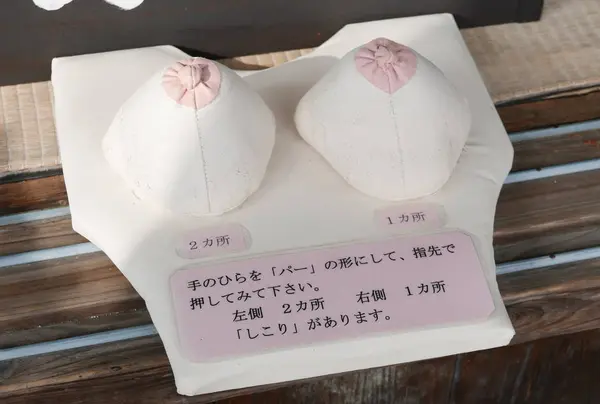 ２カ所
１カ所
手のひらを「パー」の形にして、指先で
押してみて下さい。
左側　２カ所　　右側　１カ所
「しこり」があります。